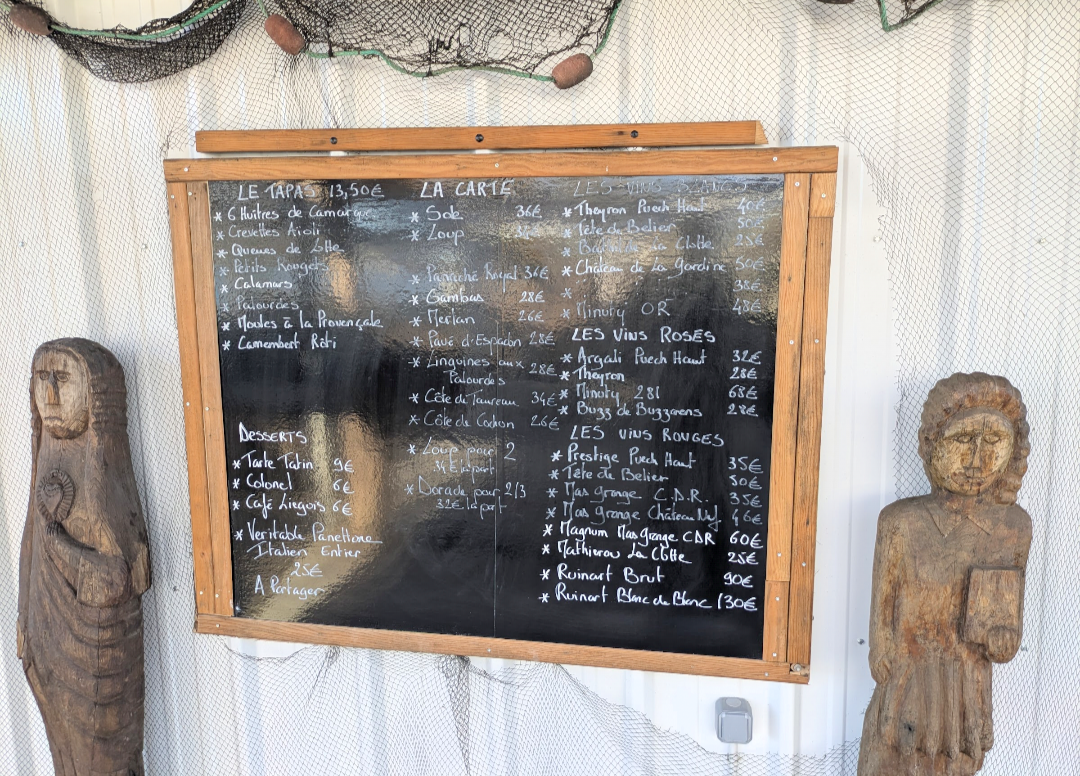 LE TAPAS 13,50€
* 6 Huîtres de Camargue
* Crevettes Aïoli
* Queues de Lotte
* Petits Rougets
* Calamars
* Palourdes
* Moules à la Provençale
* Camembert Rôti
DESSERTS
* Tarte Tatin 9€
* Colonel 6€
* Café Liegois 6€
* Veritable Panettone
Italien Entier
25€
A Partager
LA CARTE
* Sole 36€
* Loup
* Panaché Royal 36€
* Gambas 28€
* Merlan 26€
* Pavé d'Espadon 28€
* Linguines aux
Palourdes 28€
* Côte de Taureau 34€
* Côte de Cochon 26€
* Loup pour 2
34€ la part
* Dorade pour 2/3
32€ la part
LES VINS BLANCS
* Theyron Puech Haut 40€
* Tête de Belier 50€
* La Clotte 25€
* Château de La Gardine 50€
* 38€
* Minuty OR 48€
LES VINS ROSÉS
* Argali Puech Haut 32€
* Theyron 28€
* Minuty 281 68€
* Buzz de Buzzarens 28€
LES VINS ROUGES
* Prestige Puech Haut 35€
* Tête de Belier 50€
* Mas Grange C.D.R. 35€
* Mas Grange Château Neuf 46€
* Magnum Mas Grange CDR 60€
* Mathierou La Clotte 25€
* Ruinart Brut 90€
* Ruinart Blanc de Blanc 130€